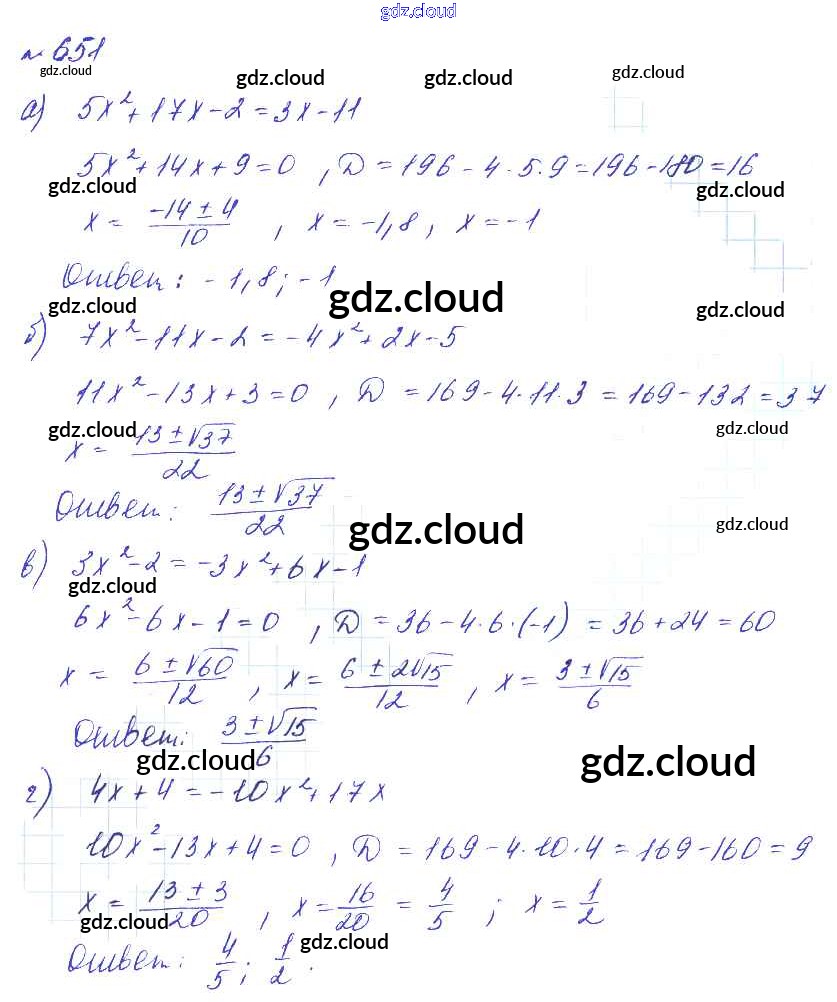 gdz.cloud
№ 651
gdz.cloud gdz.cloud gdz.cloud gdz.cloud
а) 5x² + 17x - 2 = 3x - 11
5x² + 14x + 9 = 0 , D = 196 - 4 · 5 · 9 = 196 - 180 = 16
gdz.cloud gdz.cloud
x = (-14 ± 4)/10 , x = -1,8 , x = -1
Ответ: -1,8 ; -1
gdz.cloud gdz.cloud gdz.cloud
б) 7x² - 11x - 2 = -4x² + 2x - 5
11x² - 13x + 3 = 0 , D = 169 - 4 · 11 · 3 = 169 - 132 = 37
gdz.cloud gdz.cloud
x = (13 ± √37)/22
Ответ: (13 ± √37)/22
gdz.cloud gdz.cloud
в) 3x² - 2 = -3x² + 6x - 1
gdz.cloud
6x² - 6x - 1 = 0 , D = 36 - 4 · 6 · (-1) = 36 + 24 = 60
x = (6 ± √60)/12 , x = (6 ± 2√15)/12 , x = (3 ± √15)/6
Ответ: (3 ± √15)/6
gdz.cloud gdz.cloud gdz.cloud
г) 4x + 4 = -10x² + 17x
10x² - 13x + 4 = 0 , D = 169 - 4 · 10 · 4 = 169 - 160 = 9
x = (13 ± 3)/20 , x = 16/20 = 4/5 ; x = 1/2
gdz.cloud gdz.cloud
Ответ: 4/5 ; 1/2 .
gdz.cloud